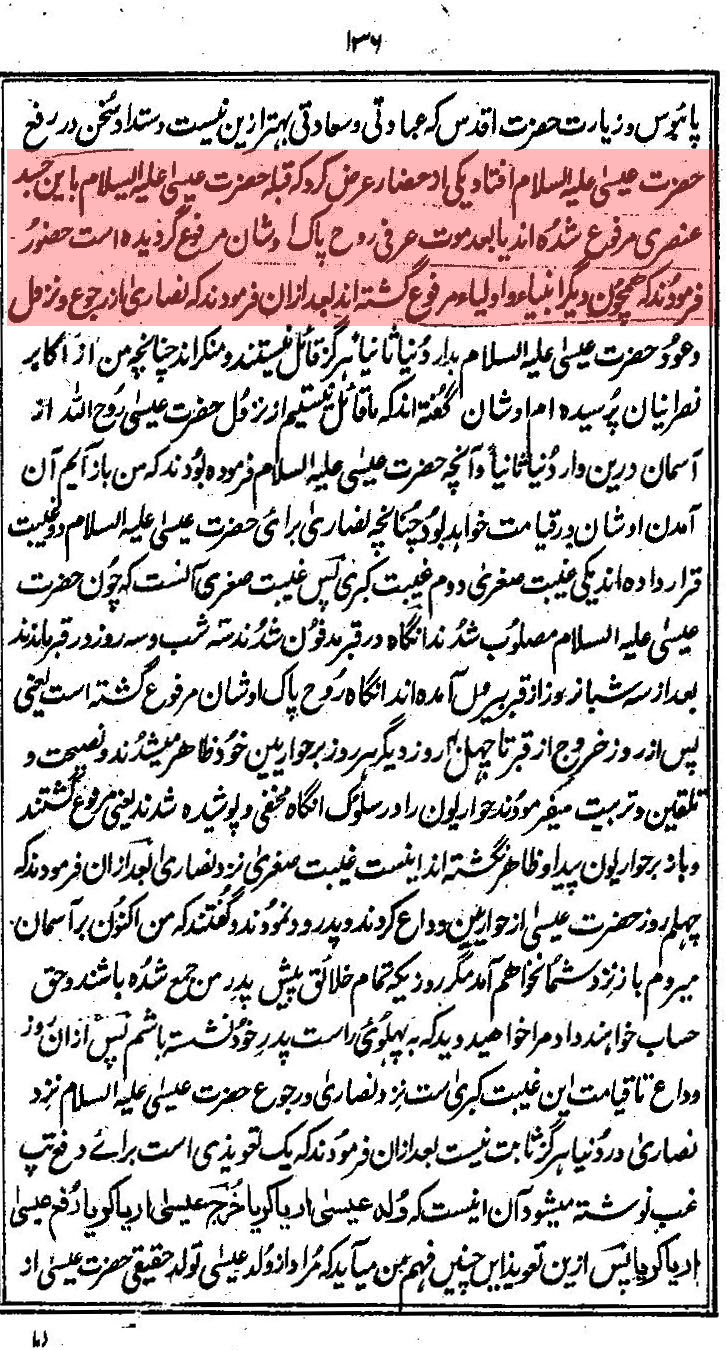 ۱۳۶
پائبوس و زیارت حضرت اقدس که عبادتی و سعادتی بهتر ازین نیست دستداد سخن در رفع
حضرت عیسیٰ علیه السلام افتاد یکی از حضار عرض کرد که قبله حضرت عیسیٰ علیه السلام باین جسد
عنصری مرفوع شده اند یا بعد موت عرفی روح پاک اوشان مرفوع گردیده است حضور
فرمودند که همچون دیگر انبیاء و اولیاء مرفوع گشته اند بعد ازان فرمودند که نصاریٰ از رجوع و نزول
وعود حضرت عیسیٰ علیه السلام بدار دُنیا ثانیاً هرگز قائل نیستند و منکر اند چنانچه من از اکابر
نصرانیان پُرسیده ام اوشان گفته اند که ما قائل نیستیم از نزول حضرت عیسیٰ رُوح الله از
آسمان درین دار دُنیا ثانیاً و آنچه حضرت عیسیٰ علیه السلام فرموده بُودند که من باز آیم آن
آمدن اوشان در قیامت خواهد بُود چنانچه نصاریٰ برائ حضرت عیسیٰ علیه السلام دو غیبت
قرار داده اند یکی غیبت صغریٰ دوم غیبت کبریٰ پس غیبت صغریٰ آنست که چون حضرت
عیسیٰ علیه السلام مصلوب شدند انگاه در قبر مدفون شدند سه شب و سه روز در قبر ماندند
بعد از سه شبانروز از قبر بیرون آمده اند انگاه رُوح پاک اوشان مرفوع گشته است یعنی
پس از روز خروج از قبر تا چهل روز دیگر هر روز بر حواریین خود ظاهر میشدند و نصیحت و
تلقین و تربیت میفرمودند حواریون را در سلوک انگاه مخفی و پوشیده شدند یعنی مرفوع گشتند
و باز بر حواریون پیدا و ظاهر نگشته اند اینست غیبت صغریٰ نزد نصاریٰ بعد ازان فرمودند که
چهلم روز حضرت عیسیٰ از حواریین وداع کردند و پدرود نمودند و گفتند که من اکنون بر آسمان
میروم باز نزد شما نخواهم آمد مگر روزیکه تمام خلائق پیش پدر من جمع شده باشند و حق
حساب خواهند داد مرا خواهید دید که به پهلوئ راست پدر خود نشسته باشم پس ازان روز
وداع تا قیامت این غیبت کبریٰ است نزد نصاریٰ و رجوع حضرت عیسیٰ علیه السلام نزد
نصاریٰ در دُنیا هرگز ثابت نیست بعد ازان فرمودند که یک تعویذی است برائے دفع تپ
غب نوشته میشود آن اینست که وُلد عیسیٰ اریا کریا خُرج عیسیٰ اریا کریا رُفع عیسیٰ
اریا کریا پس ازین تعویذ این چنین فهم من میآید که مُراد از وُلد عیسیٰ تولد حقیقی حضرت عیسیٰ از